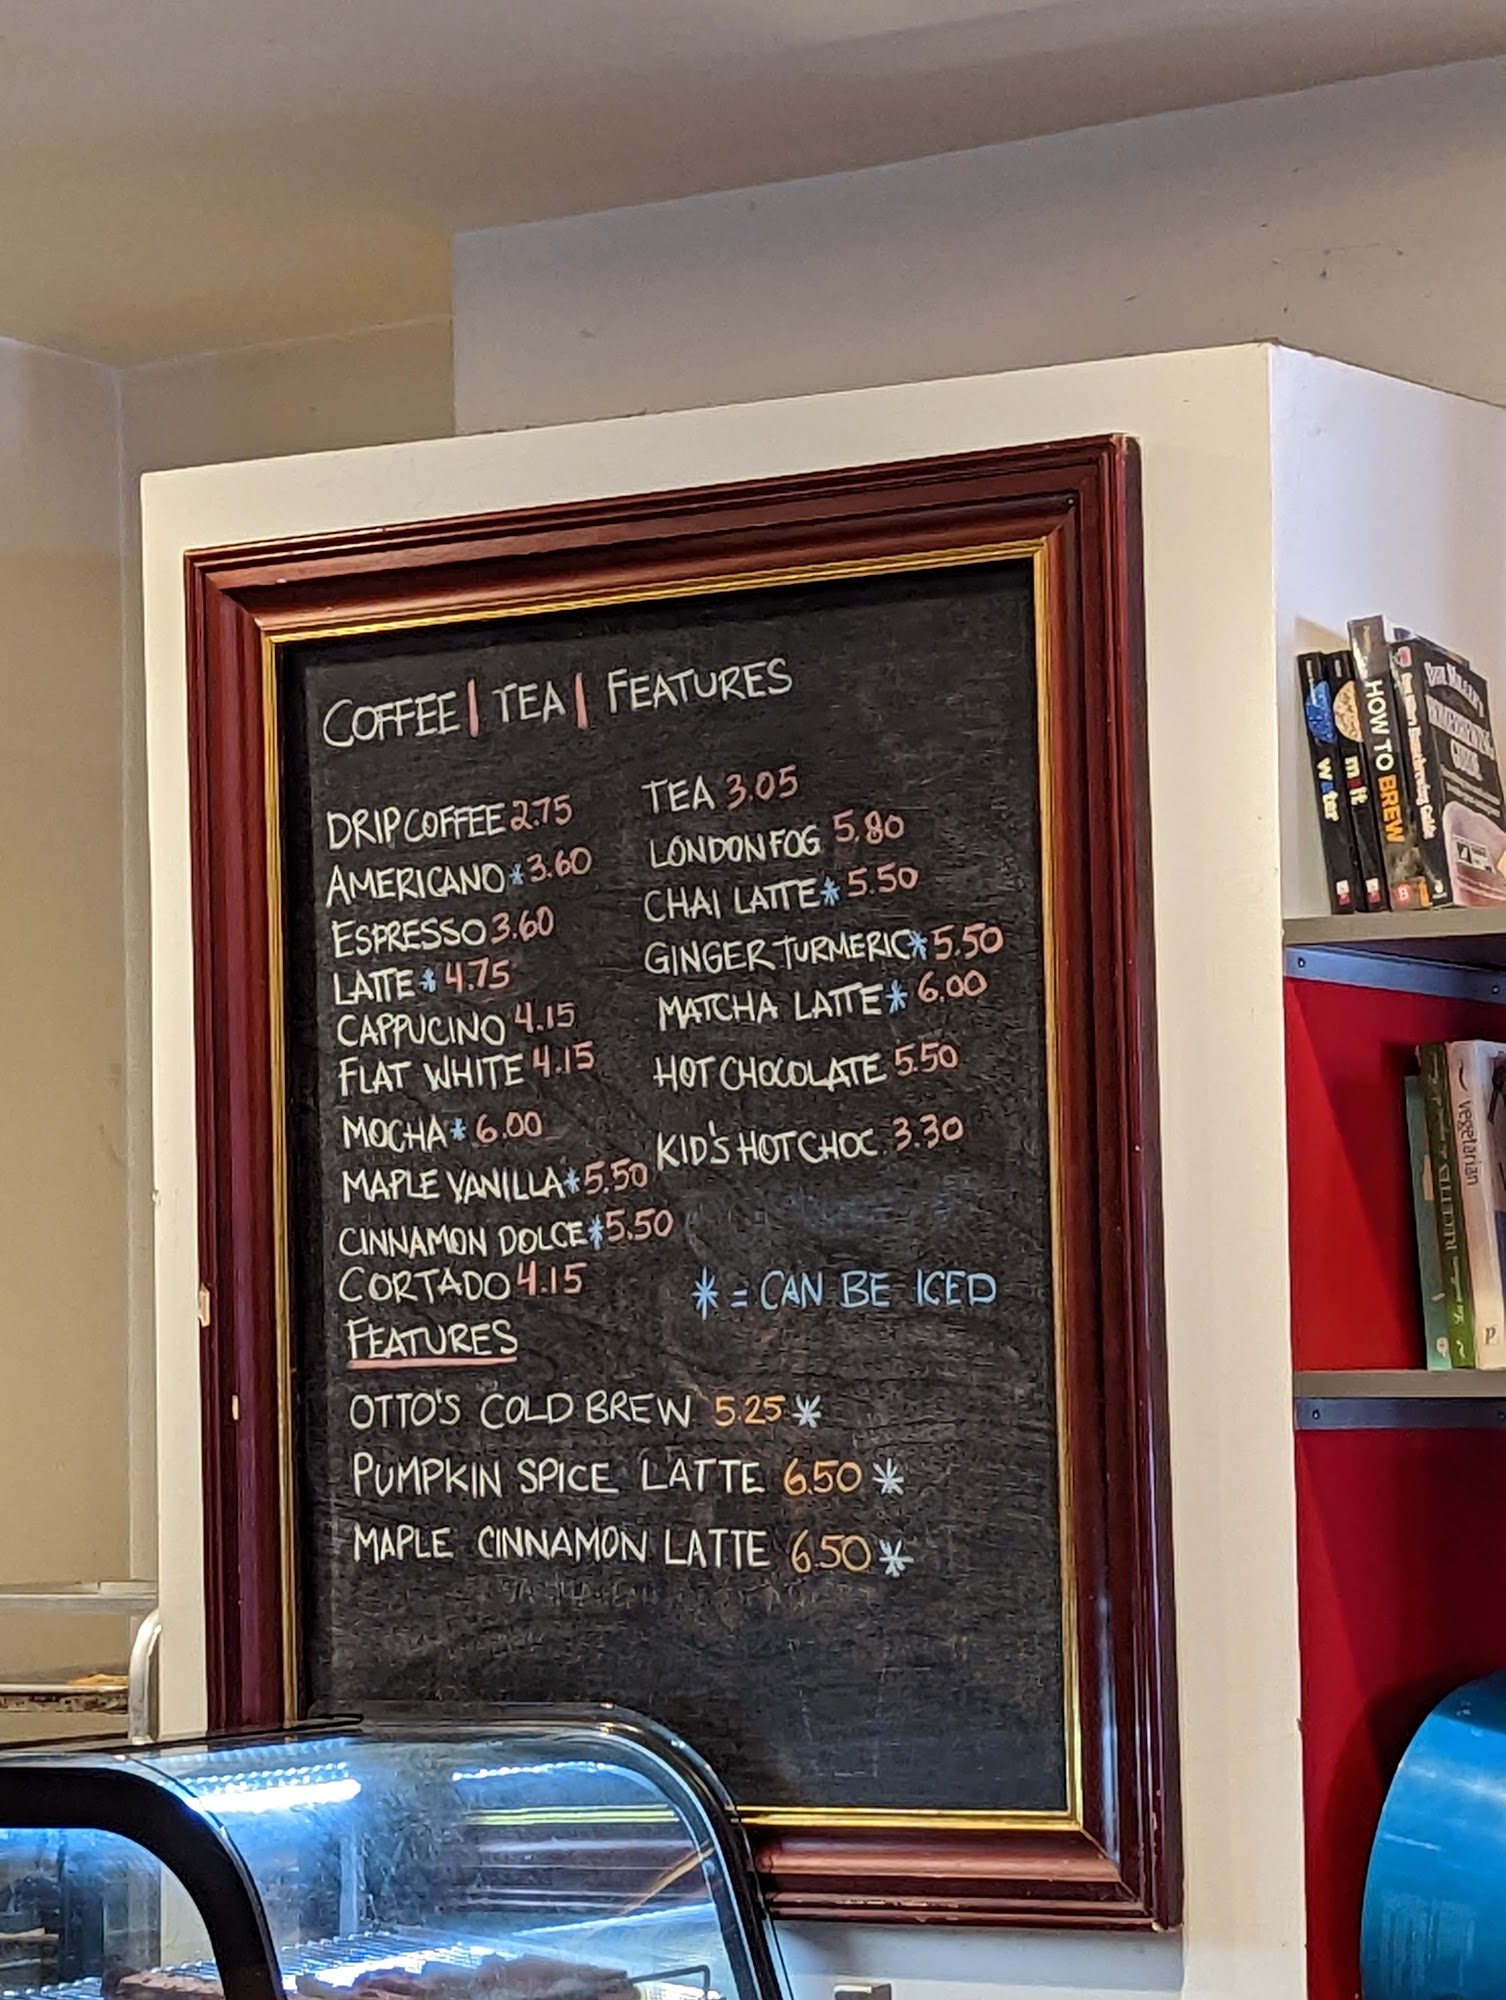 COFFEE | TEA | FEATURES
DRIP COFFEE 2.75
AMERICANO * 3.60
ESPRESSO 3.60
LATTE * 4.75
CAPPUCINO 4.15
FLAT WHITE 4.15
MOCHA * 6.00
MAPLE VANILLA * 5.50
CINNAMON DOLCE * 5.50
CORTADO 4.15
TEA 3.05
LONDON FOG 5.80
CHAI LATTE * 5.50
GINGER TURMERIC * 5.50
MATCHA LATTE * 6.00
HOT CHOCOLATE 5.50
KID'S HOT CHOC 3.30
* = CAN BE ICED
FEATURES
OTTO'S COLD BREW 5.25 *
PUMPKIN SPICE LATTE 6.50 *
MAPLE CINNAMON LATTE 6.50 *
water
malt
HOW TO BREW
vegetarian